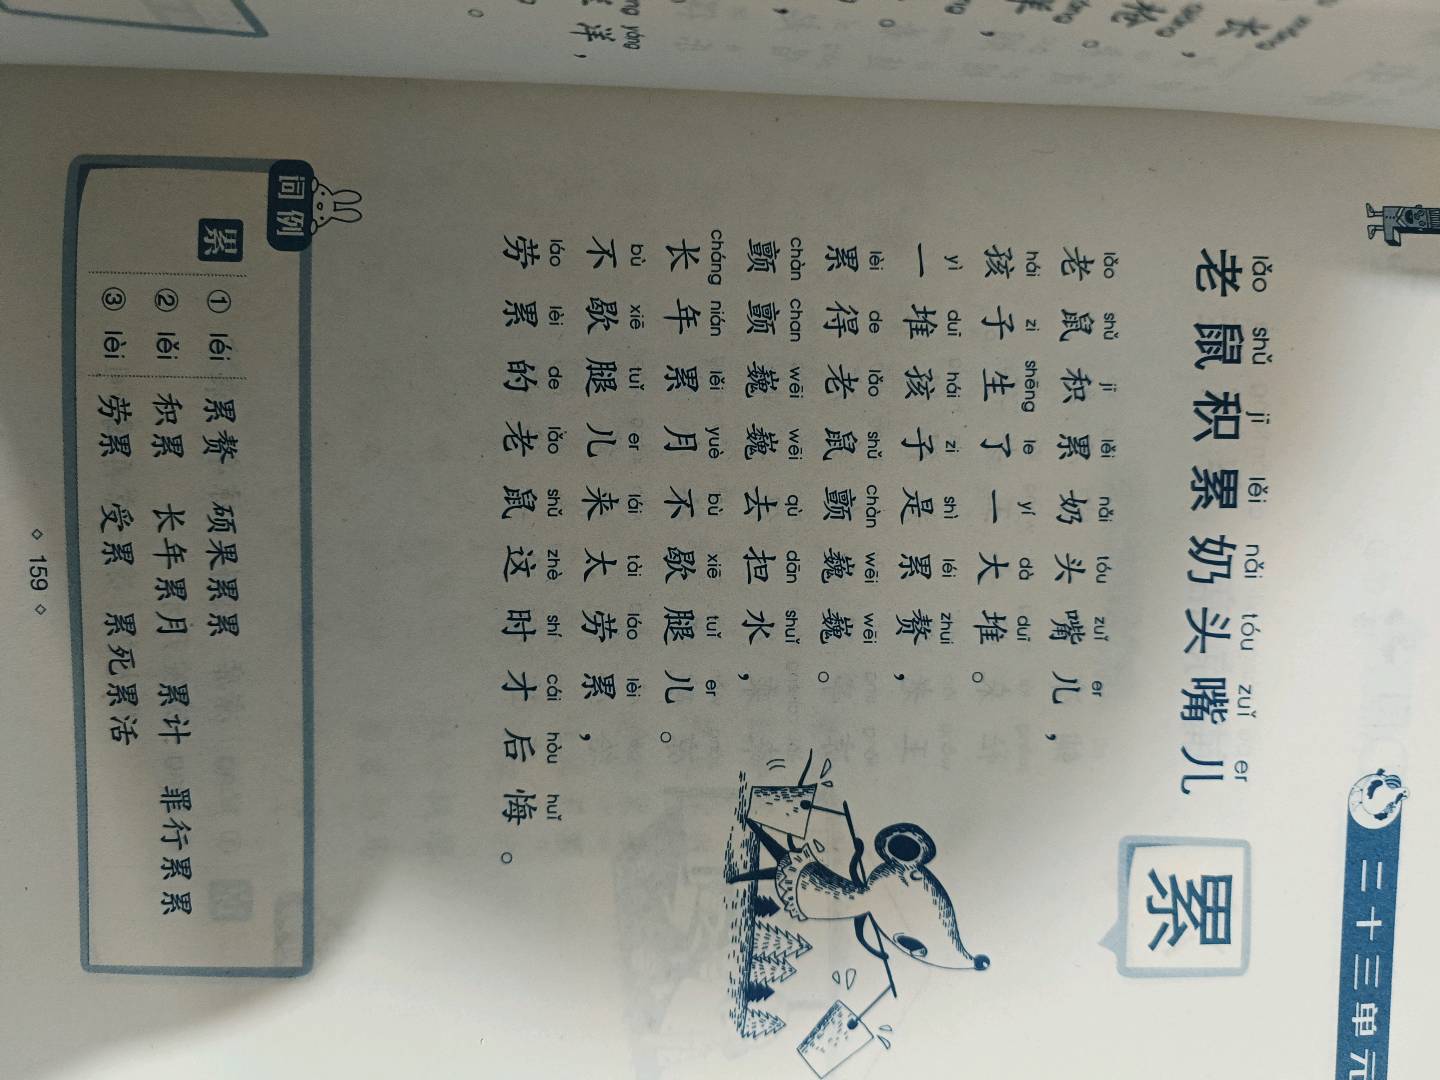 二十三单元
lǎo shǔ jī lěi nǎi tóu zuǐ er
老鼠积累奶头嘴儿
累
lǎo shǔ jī lěi nǎi tóu zuǐ er
老鼠积累奶头嘴儿，
hái zi shēng le yí dà duī
孩子生了一大堆。
yì duī hái zi shì léi zhui
一堆孩子是累赘，
lèi de lǎo shǔ chàn wēi wēi
累得老鼠颤巍巍。
chàn chan wēi wēi qù dān shuǐ
颤颤巍巍去担水，
cháng nián lěi yuè bù xiē tuǐ er
长年累月不歇腿儿。
bù xiē tuǐ er lái tài láo lèi
不歇腿儿来太劳累，
láo lèi de lǎo shǔ zhè shí cái hòu huǐ
劳累的老鼠这时才后悔。
词例
累 ① léi 累赘 硕果累累
② lěi 积累 长年累月 累计 罪行累累
③ lèi 劳累 受累 累死累活
159